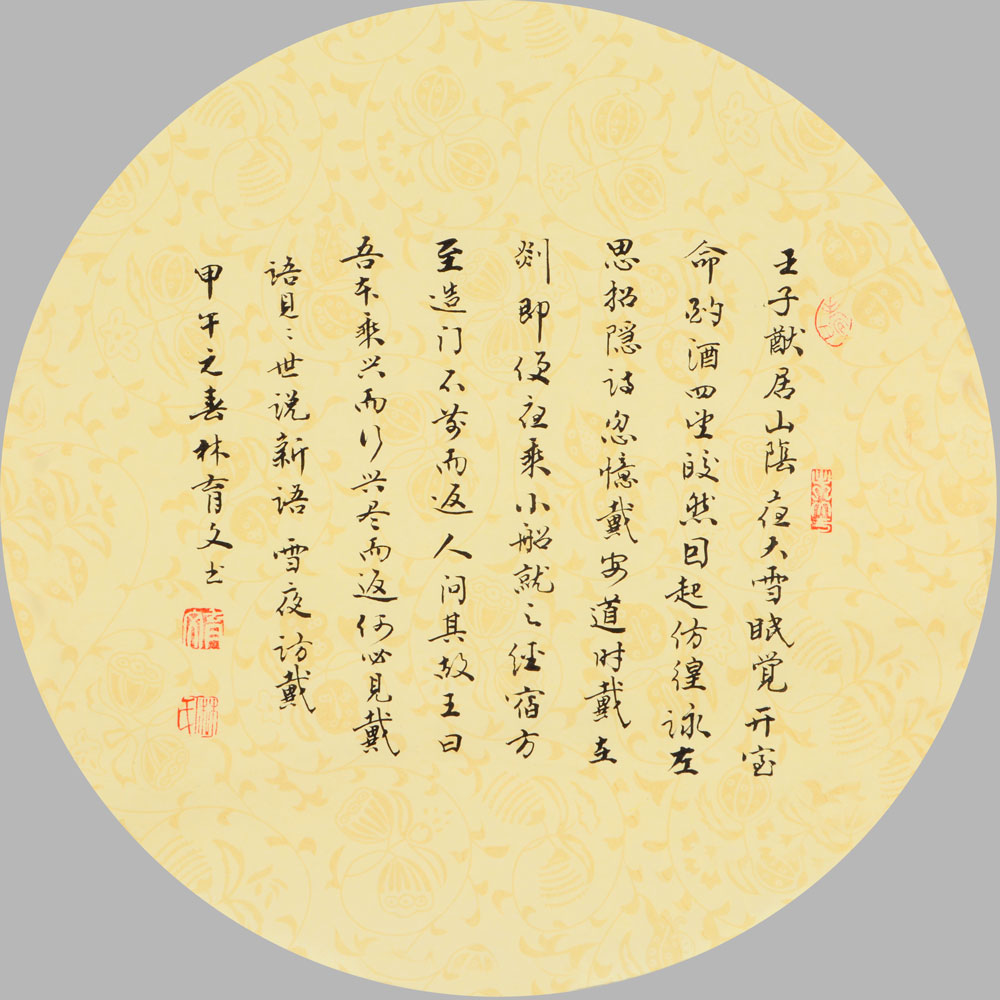 王子猷居山陰夜大雪眠觉开室
命酌酒四望皎然因起仿徨詠左
思招隐诗忽憶戴安道时戴在
剡即便夜乘小船就之经宿方
至造门不前而返人问其故王曰
吾本乘兴而行兴尽而返何必见戴
語見：世说新語 雪夜访戴
甲午元春林育文书
育文
林氏